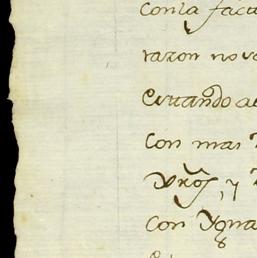 con la facu
razon no ve
Curando a
con mas
Vros, y
con Ygna